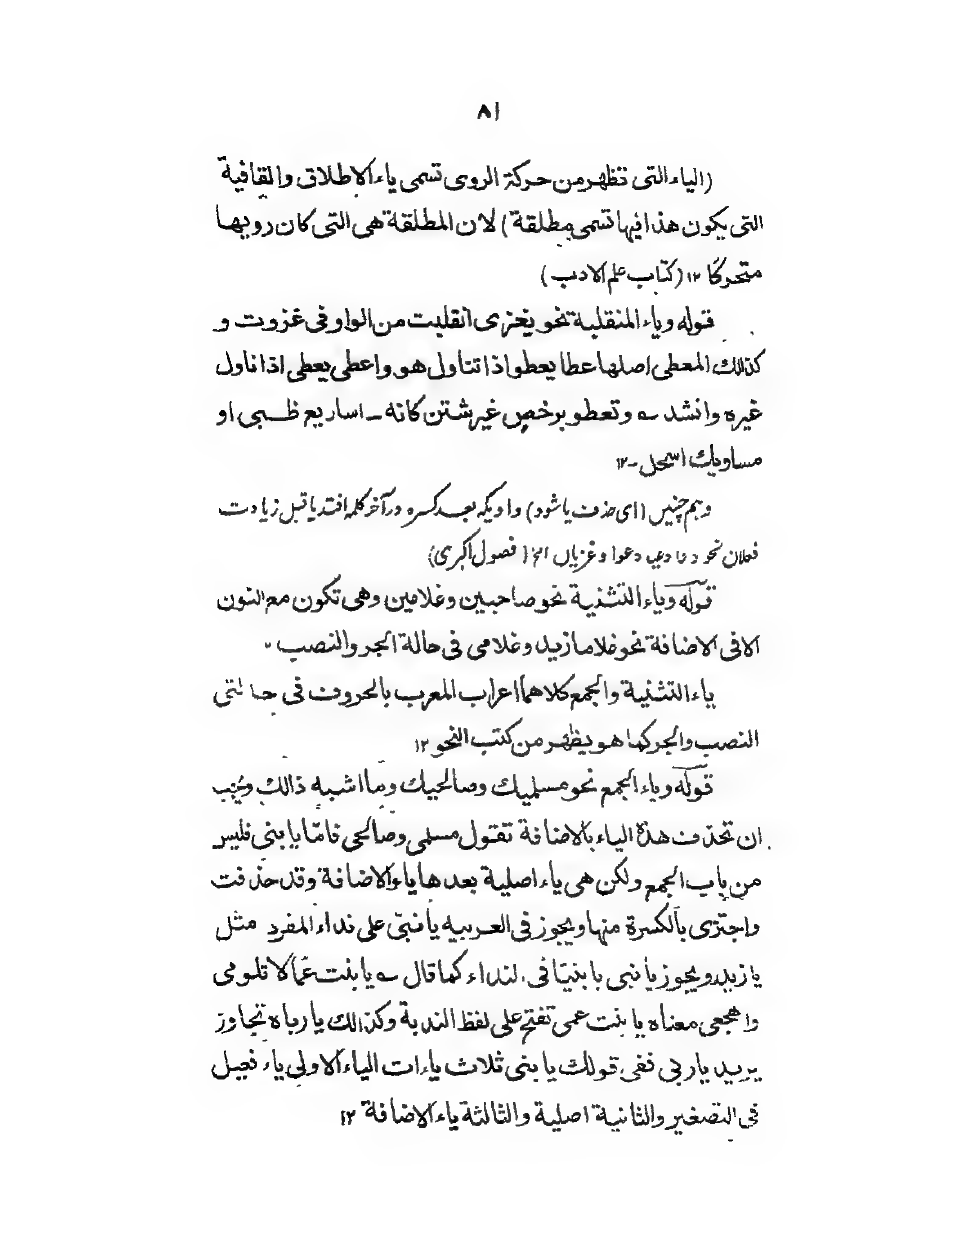 ٨١
(الياء التى تظهر من حركة الروى تسمى ياء الاطلاق والقافية
التى يكون هذا فيها تسمى مطلقة) لان المطلقة هى التى كان رويها
متحركا ١٢ (كتاب علم الادب)
قوله وياء المنقلبة نحو يغزى انقلبت من الواو فى غزوت و
كذالك المعطى اصلها عطا يعطو اذا تناول هو واعطى يعطى اذا ناول
غيره وانشد ؎ وتعطو برخص غير شتن كانه ــ اساريع ظبى او
مساويك اسحل ــ ١٢
وہم چنیں (ای حذف یا شود) واویکہ بعد کسرہ در آخر کلمہ افتد یا قبل زیادت
فعلان نحو دعا دعی دعوا وغزیان الخ (فصول اکبری)
قوله وياء التثنية نحو صاحبين وغلامين وهى تكون مع النون
الا فى الاضافة نحو غلاما زيد وغلامى فى حالة الجر والنصب "
ياء التثنية والجمع كلاهما اعراب المعرب بالحروف فى حالتى
النصب والجر كما هو يظهر من كتب النحو ١٢
قوله وياء الجمع نحو مسلميك وصالحيك وما اشبه ذالك ويجب
ان تحذف هذه الياء بالاضافة تقول مسلمى وصالحى فامّا يا بنى فليس
من باب الجمع ولكن هى ياء اصلية بعدها ياء الاضافة وقد حذفت
واجتزى بالكسرة منها ويجوز فى العربيه يا بنىّ على نداء المفرد مثل
يا زيد ويجوز يا بنى يا بنيّا فى النداء كما قال ؎ يا بنت عمّا لا تلومى
واهجعى معناه يا بنت عمى تفتح على لفظ الندبة وكذالك يا رباه تجاوز
يريد يا ربى ففى قولك يا بنى ثلاث ياءات الياء الاولى ياء فعيل
فى التصغير والثانية اصلية والثالثة ياء الاضافة ١٢